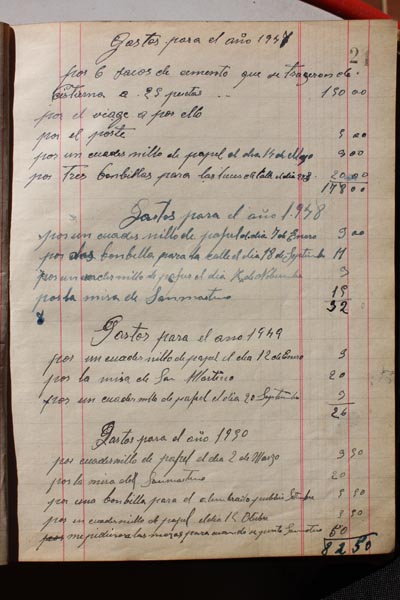 Gastos para el año 1947
2
por 6 sacos de cemento que se trageron de
Cisterna a 25 pesetas .. 150 00
por el viage a por ello
por el porte 5 00
por un cuadernillo de papel el dia 14 de Mayo 3 00
por tres bonbillas para las luces calle el dia 20 00
178 00
Gastos para el año 1948
por un cuadernillo de papel el dia 7 de Enero 3 00
por dos bonbilla para la calle el dia 18 de Septienbre 11
por un cuadernillo de papel el dia de Novienbre 3
por la misa de Sanmartino 15
32
Gastos para el año 1949
por un cuadernillo de papel el dia 12 de Enero 3
por la misa de San Martino 20
por un cuadernillo de papel el dia 20 Septienbre 3
26
Gastos para el año 1950
por cuadernillo de papel el dia 2 de Marzo 3 50
por la misa del Sanmartino 20
por una bonbilla para el alunbrado publico 5 50
por un cuadernillo de papel el dia 15 Octubre 3 50
por me pidieron las mozas para cuando se junto Sanmartino 50
82 50